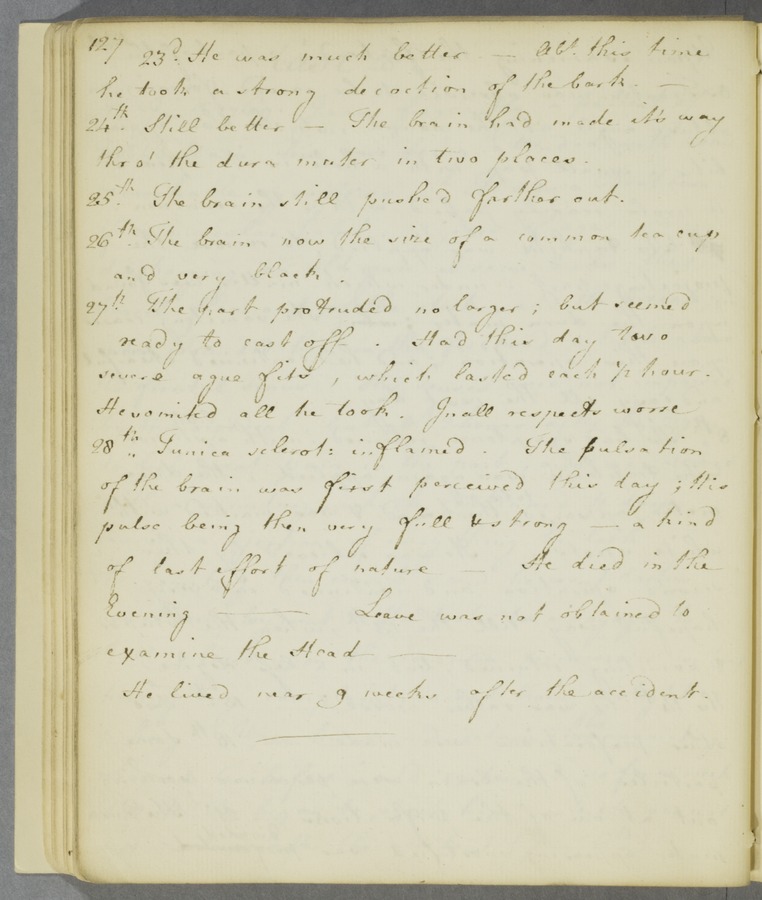 127
23d. He was much better — Abt. this time
he took a strong decoction of the bark. —
24th. Still better — The brain had made it's way
thro' the dura mater in two places.
25th. The brain still pushed farther out.
26th. The brain now the size of a common tea cup
and very black.
27th. The part protruded no larger; but seemed
ready to cast off. Had this day two
severe ague fits, which lasted each 1/2 hour.
He vomited all he took. In all respects worse
28th. Tunica sclerot: inflamed. The pulsation
of the brain was first perceived this day; His
pulse being then very full & strong — a kind
of last effort of nature — He died in the
Evening — Leave was not obtained to
examine the Head —
He lived near 9 weeks after the accident.